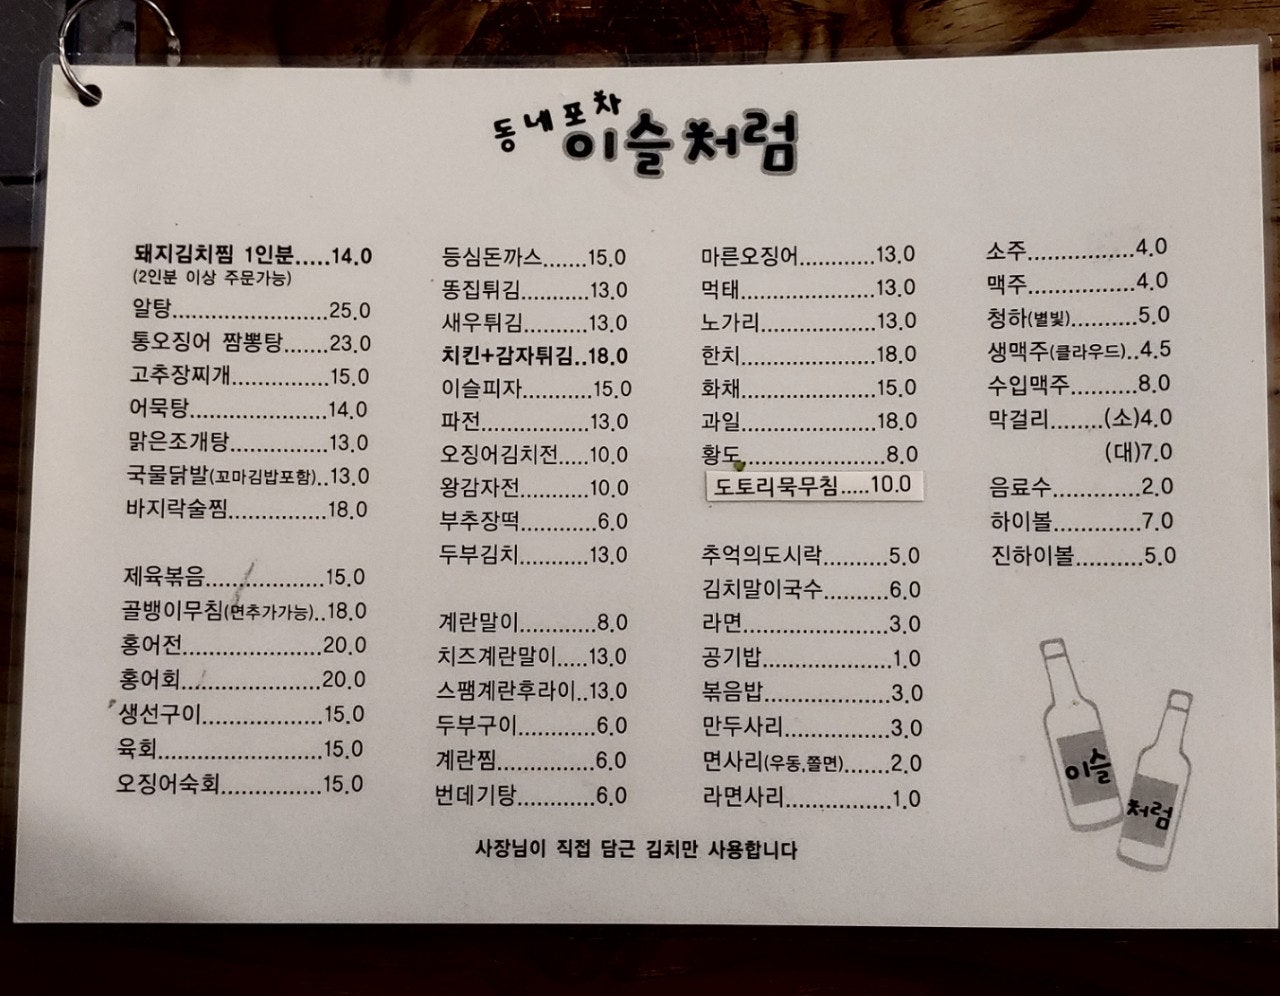 동네포차
이슬처럼
돼지김치찜 1인분.....14.0
(2인분 이상 주문가능)
알탕........................25.0
통오징어 짬뽕탕.......23.0
고추장찌개...............15.0
어묵탕.....................14.0
맑은조개탕...............13.0
국물닭발(꼬마김밥포함)..13.0
바지락술찜...............18.0
제육볶음..................15.0
골뱅이무침(면추가가능)..18.0
홍어전.....................20.0
홍어회.....................20.0
생선구이..................15.0
육회.........................15.0
오징어숙회...............15.0
등심돈까스.......15.0
똥집튀김..........13.0
새우튀김..........13.0
치킨+감자튀김..18.0
이슬피자..........15.0
파전................13.0
오징어김치전....10.0
왕감자전..........10.0
부추장떡...........6.0
두부김치..........13.0
계란말이...........8.0
치즈계란말이.....13.0
스팸계란후라이..13.0
두부구이...........6.0
계란찜..............6.0
번데기탕...........6.0
마른오징어...........13.0
먹태....................13.0
노가리.................13.0
한치....................18.0
화채....................15.0
과일....................18.0
황도.....................8.0
도토리묵무침.....10.0
추억의도시락..........5.0
김치말이국수..........6.0
라면.....................3.0
공기밥..................1.0
볶음밥..................3.0
만두사리...............3.0
면사리(우동,쫄면).......2.0
라면사리...............1.0
소주................4.0
맥주................4.0
청하(별빛)..........5.0
생맥주(클라우드)..4.5
수입맥주..........8.0
막걸리........(소)4.0
(대)7.0
음료수.............2.0
하이볼.............7.0
진하이볼..........5.0
이슬
처럼
사장님이 직접 담근 김치만 사용합니다